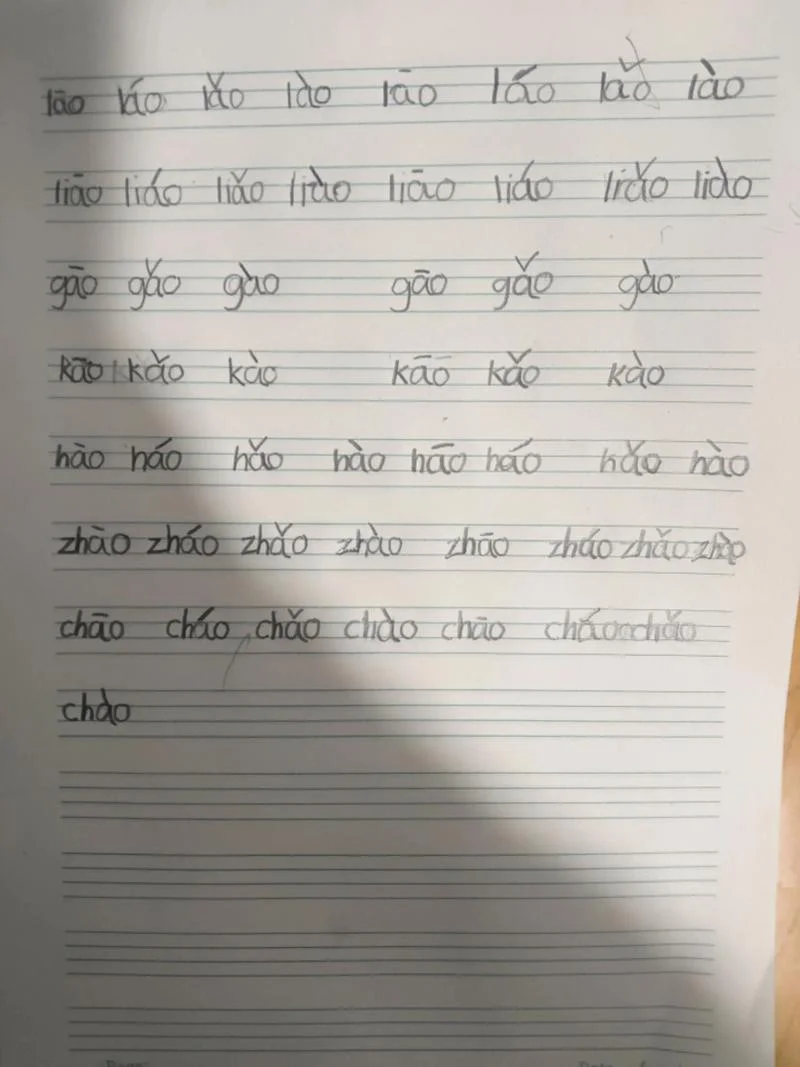 lāo láo lǎo lào lāo láo lǎo lào
liāo liáo liǎo liào liāo liáo liǎo liào
gāo gǎo gào gāo gǎo gào
kāo kǎo kào kāo kǎo kào
hào háo hǎo hào hāo háo hǎo hào
zhāo zháo zhǎo zhào zhāo zháo zhǎo zhào
chāo cháo chǎo chào chāo cháo chǎo
chào